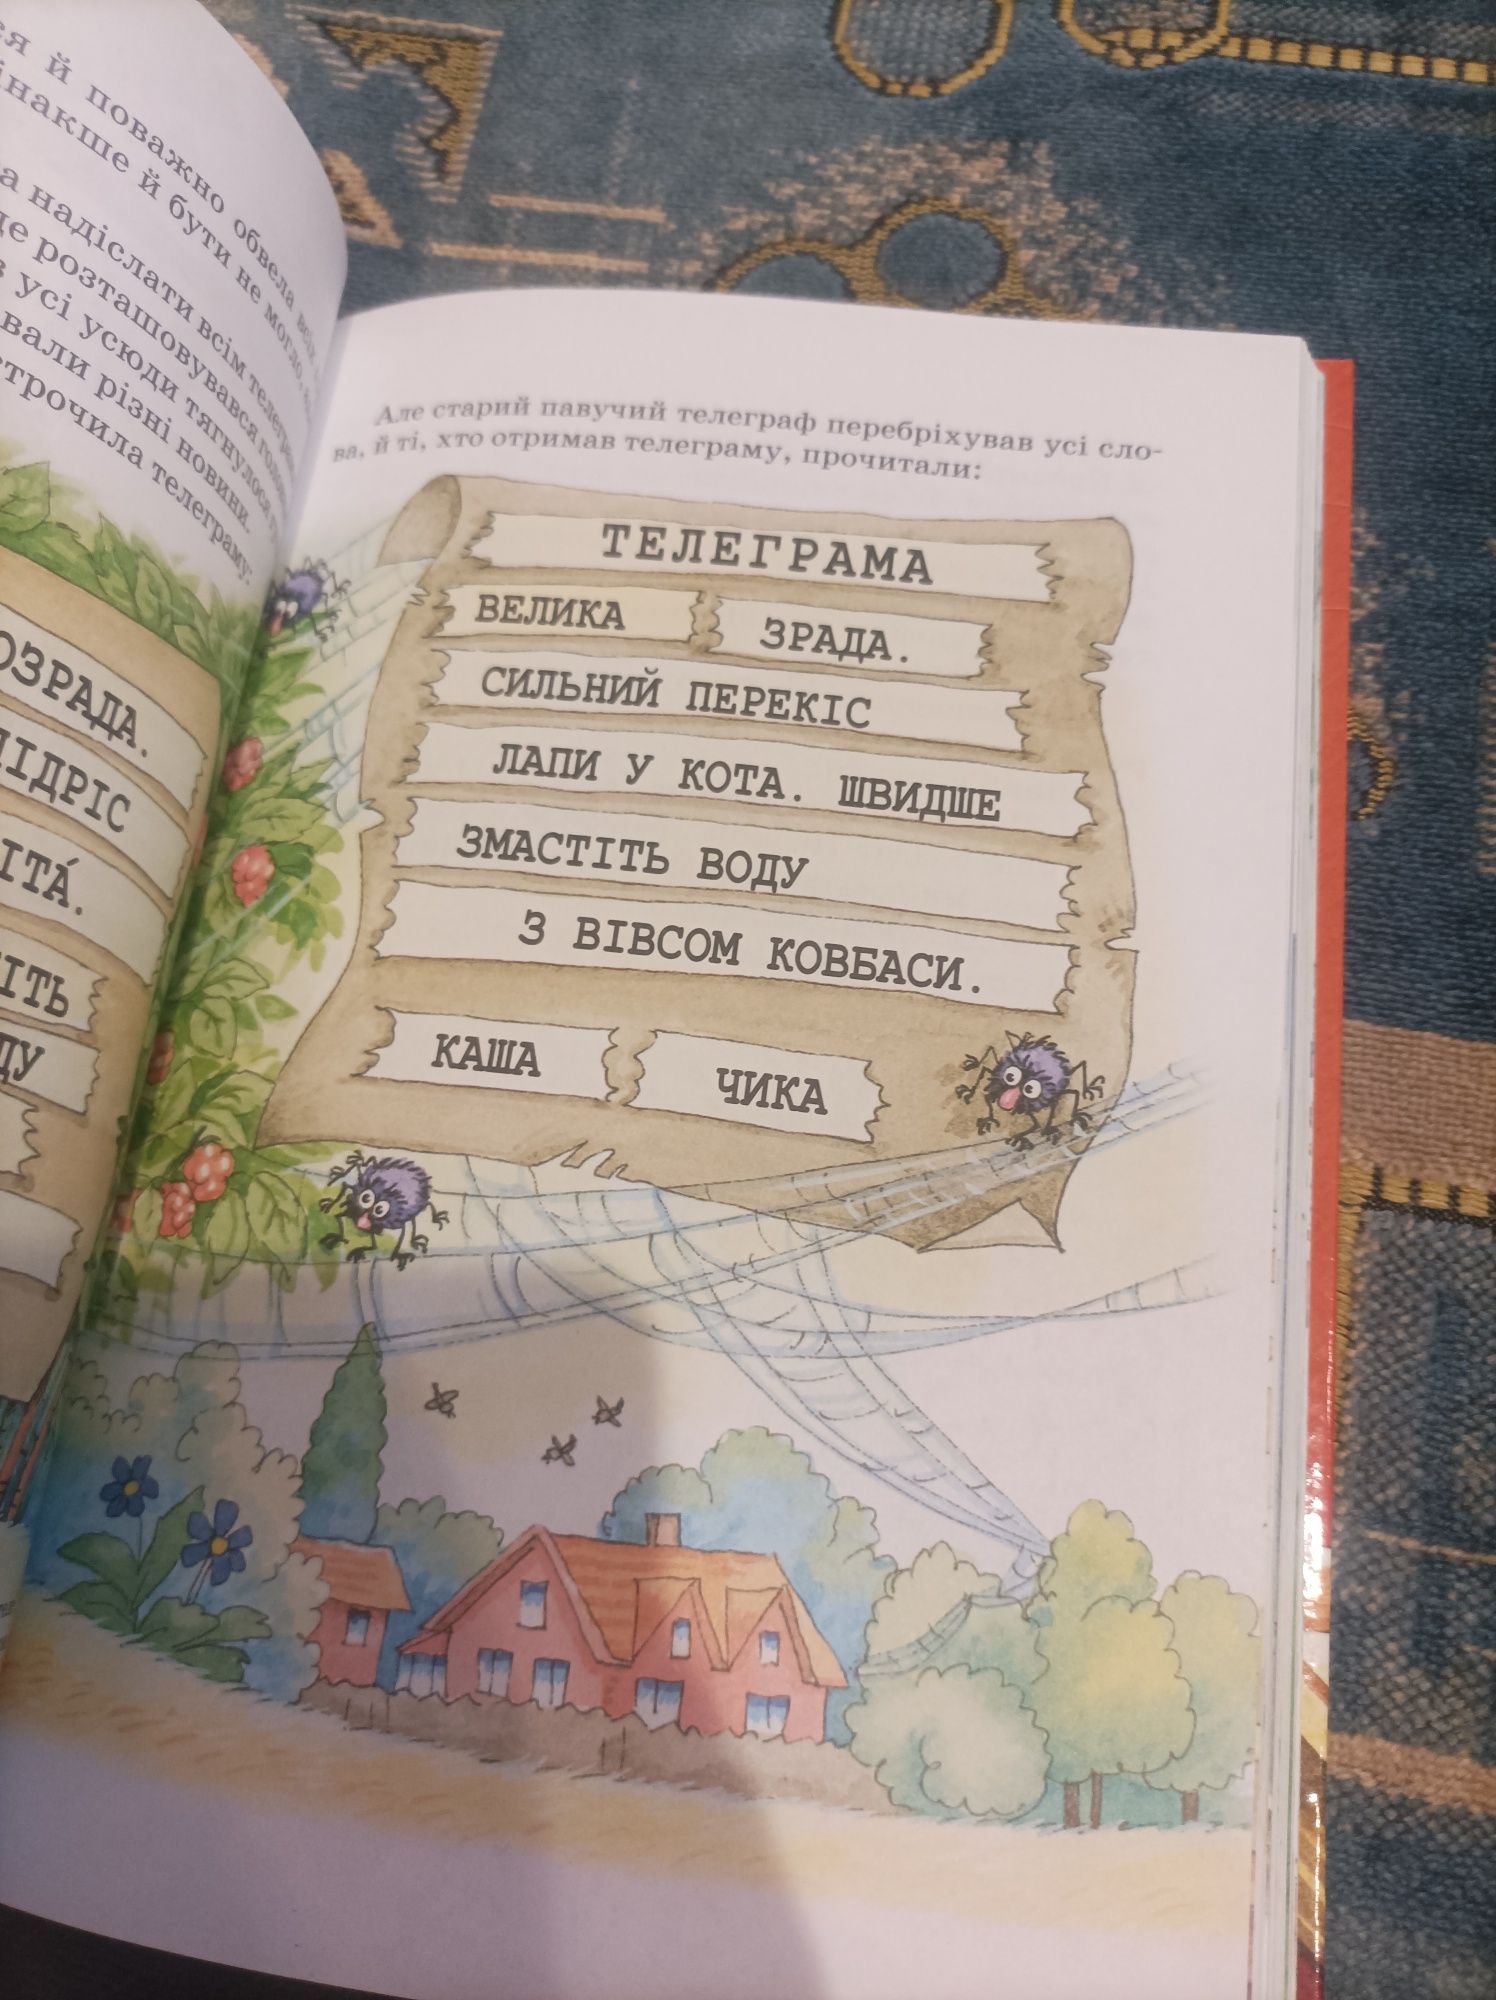 й поважно обвела всіх
інакше й бути не могло,
надіслати всім телеграм
де розташовувався голов
усі усюди тягнулося
вали різні новини.
строчила телеграму:
ОЗРАДА.
ПІДРІС
ІТА́.
ІТЬ
ДУ
Але старий павучий телеграф перебріхував усі сло-
ва, й ті, хто отримав телеграму, прочитали:
ТЕЛЕГРАМА
ВЕЛИКА ЗРАДА.
СИЛЬНИЙ ПЕРЕКІС
ЛАПИ У КОТА. ШВИДШЕ
ЗМАСТІТЬ ВОДУ
З ВІВСОМ КОВБАСИ.
КАША ЧИКА